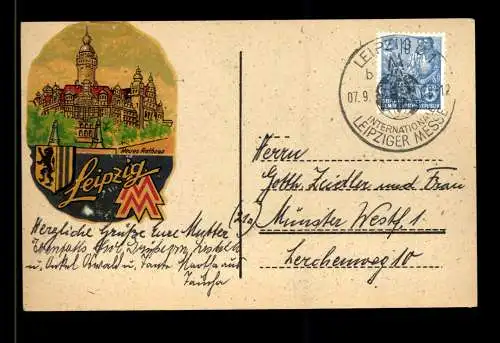 Neues Rathaus
Leipzig
MM
Herzliche Grüße Eure Mutter
u. Onkel Oswald u. Tante Martha aus
Taucha
LEIPZIG
b
07.9.
12
INTERNATIONALE
LEIPZIGER MESSE
5
Herrn
Gotth. Zeidler und Frau
Münster Westf. 1
Lerchenweg 10